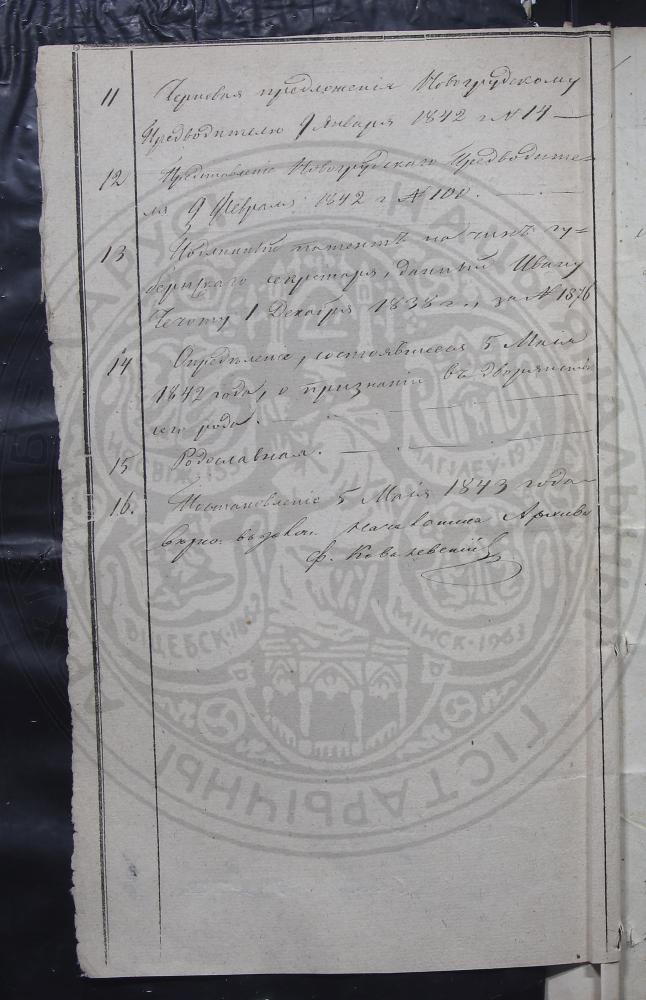 11 Черновая предложенія Новогрудскому
Предводителю 9 Января 1842 г № 14 —
12 Представленіе Новогрудского Предводите=
ля 9 Февраля 1842 г № 100.
13 патентъ на чинъ гу=
бернскаго секретаря, данный Ивану
Чечоту 1 Декабря 1838 г., за № 1876
14 Опредѣленіе, состоявшееся 5 Мая
1842 года, о признаніи въ дворянствѣ
его рода. —
15 Родославная. —
16. Постановленіе 5 Мая 1843 года
Архива
Ф. Ковалевскій
ВІЦЕБСК·1862
МІНСК·1963
МАГІЛЁЎ·19
ГІСТАРЫЧНЫ